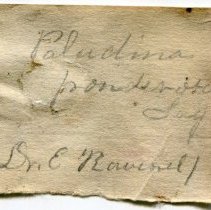 Paludina
ponderosa
Say
Dr. E Ravenel